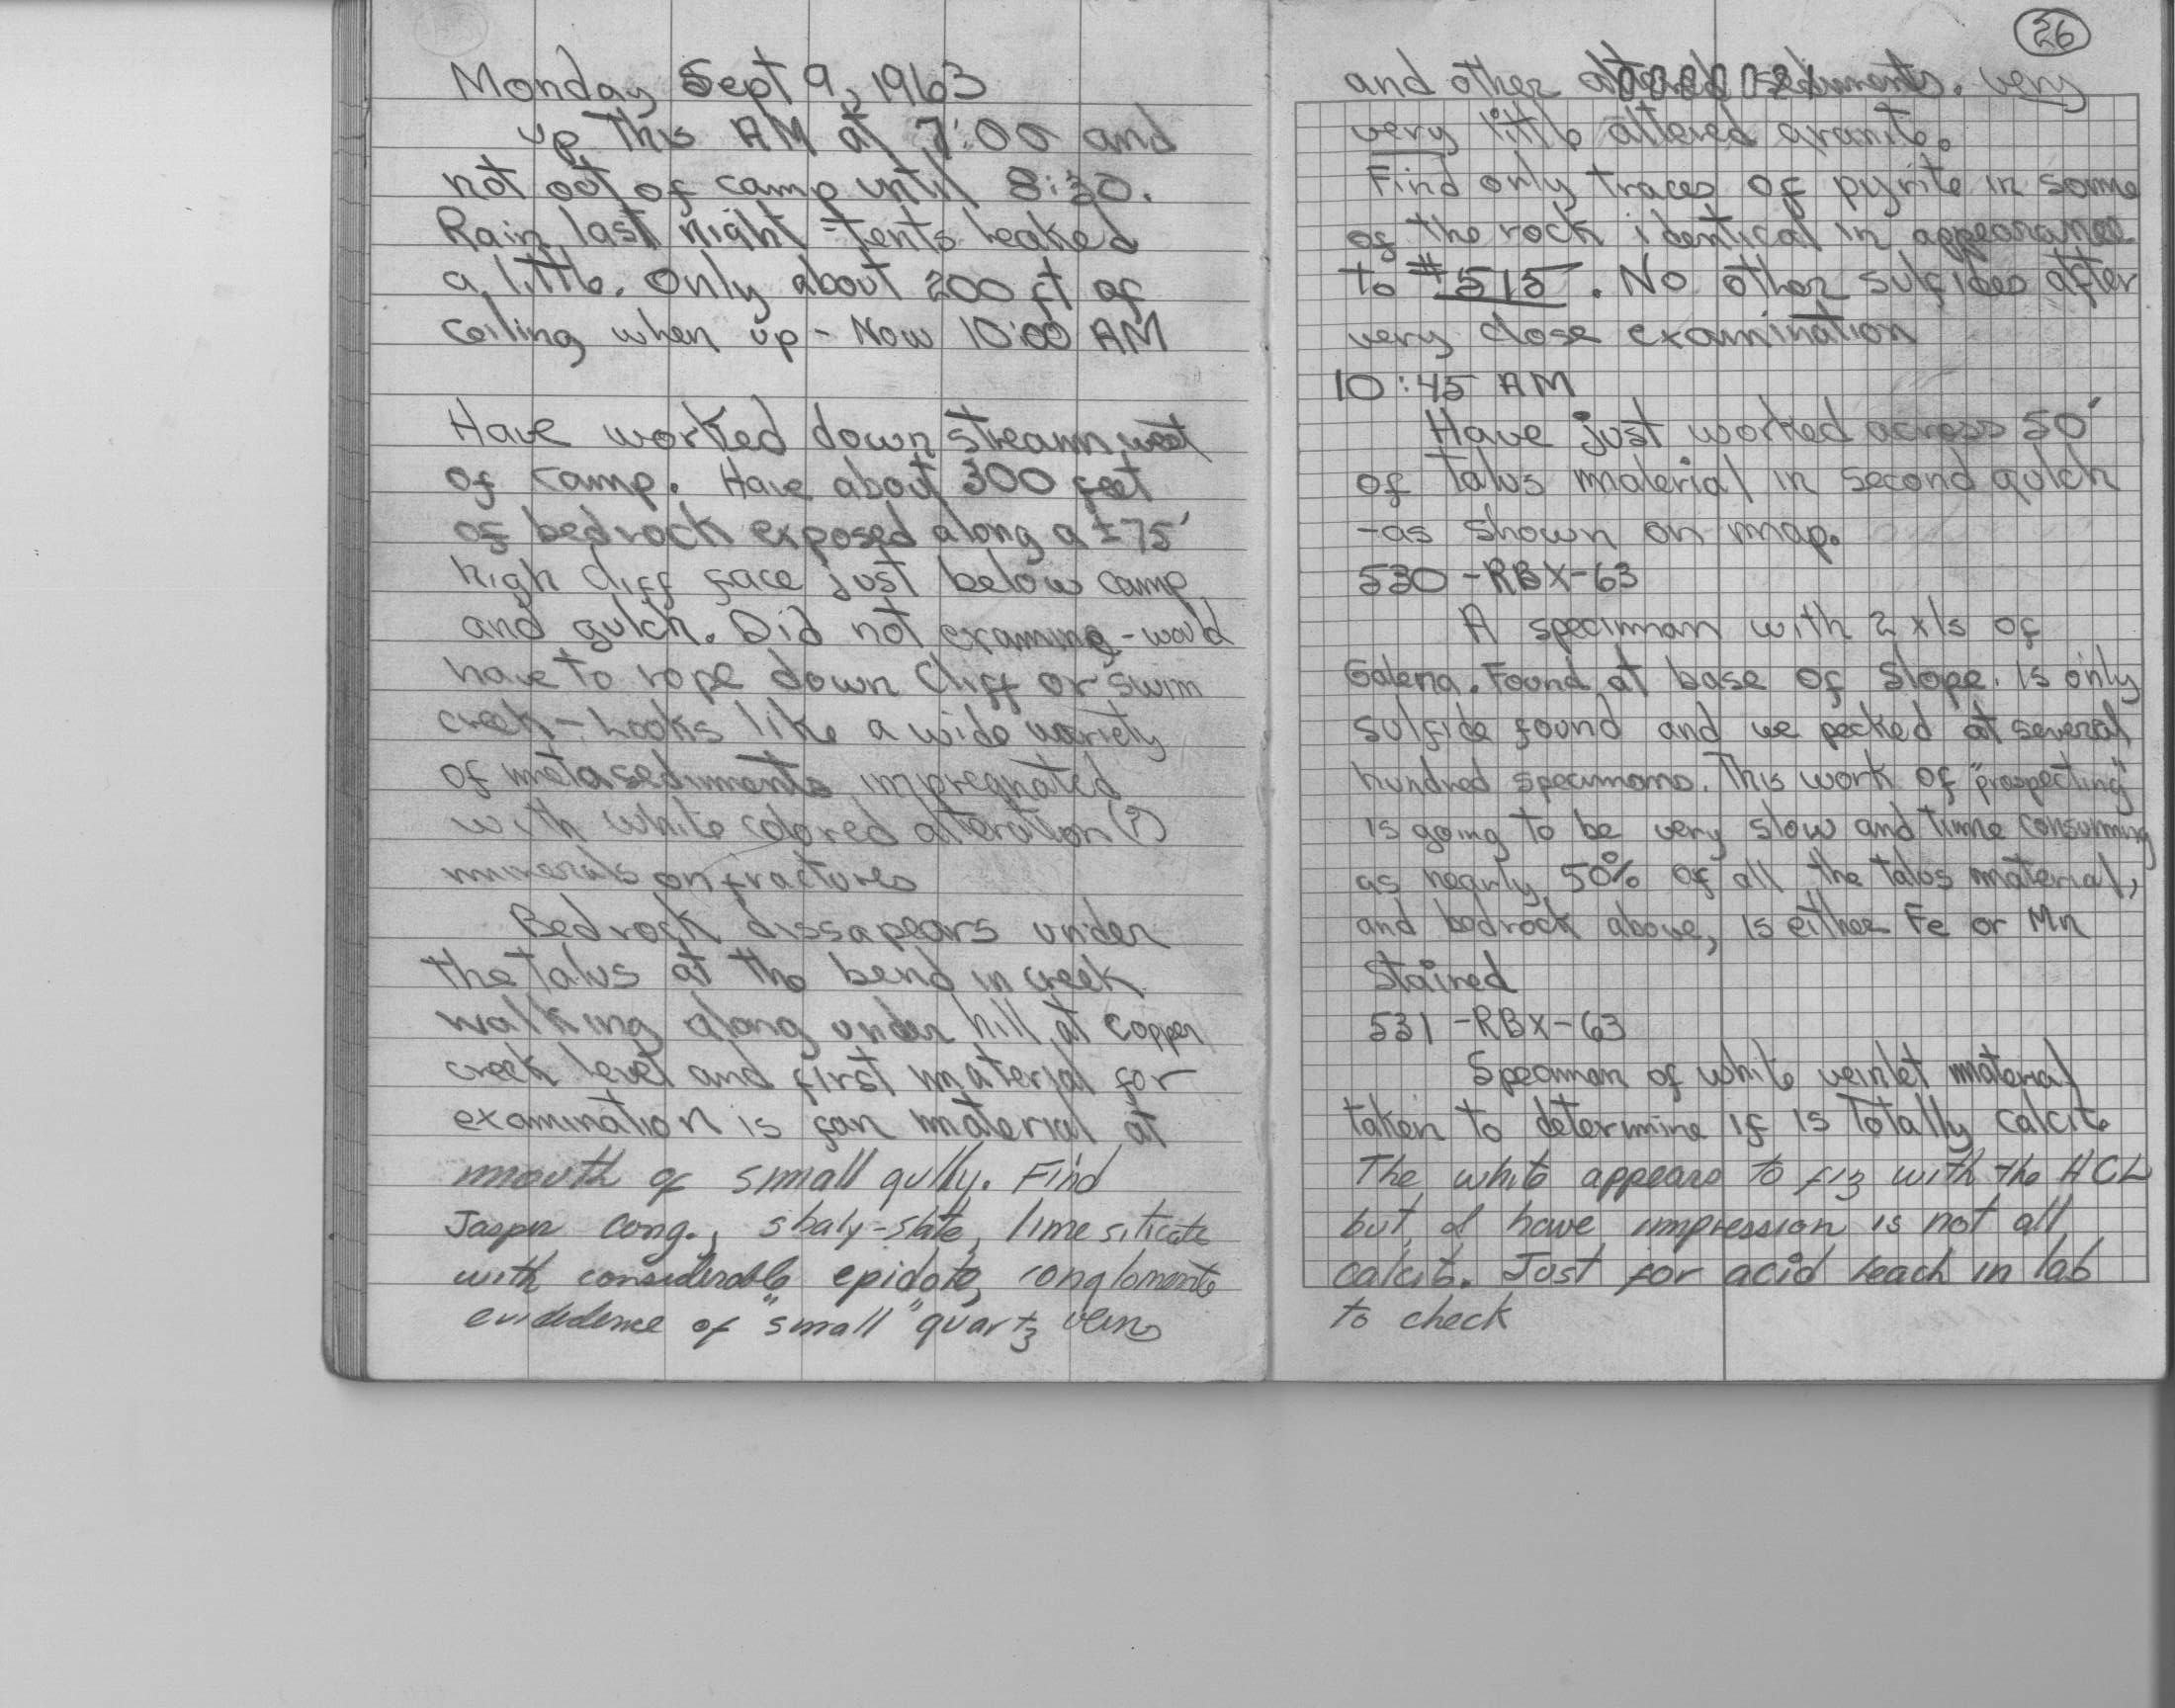 Monday Sept 9, 1963
up this AM at 7:00 and
not out of camp until 8:30.
Rain last night - tents leaked
a little. Only about 200 ft of
ceiling when up - Now 10:00 AM
Have worked down stream west
of camp. Have about 300 feet
of bedrock exposed along a ± 75'
high cliff face just below camp
and gulch. Did not examine - would
have to rope down cliff or swim
creek - Looks like a wide variety
of metasediments impregnated
with white colored alteration (?)
minerals on fractures
Bedrock dissapears under
the talus at the bend in creek
walking along under hill at Copper
creek level and first material for
examination is fan material at
mouth of small gully. Find
Jasper cong., shaly-slate, lime silicate
with considerable epidote, conglomerate
evidedence of "small" quartz veins
26
and other altered sediments. very
very little altered granite.
Find only traces of pyrite in some
of the rock identical in appearance
to #515. No other sulfides after
very close examination
10:45 AM
Have just worked across 50'
of talus material in second gulch
- as shown on map.
530 - RBX - 63
A speciman with 2 xls of
Galena. Found at base of slope. Is only
sulfide found and we pecked at several
hundred specimans. This work of "prospecting"
is going to be very slow and time consuming
as nearly 50% of all the talus material,
and bedrock above, is either Fe or Mn
stained
531 - RBX - 63
Speciman of white veinlet material
taken to determine if is totally calcite
The white appears to fiz with the HCL
but I have impression is not all
calcite. Just for acid leach in lab
to check